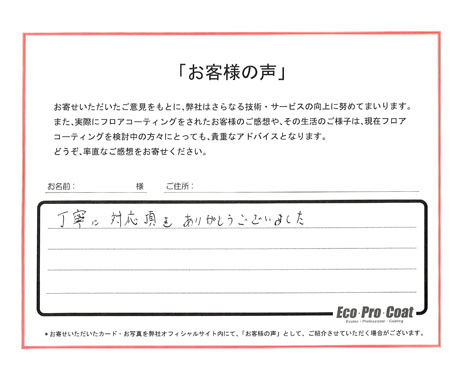 「お客様の声」
お寄せいただいたご意見をもとに、弊社はさらなる技術・サービスの向上に努めてまいります。
また、実際にフロアコーティングをされたお客様のご感想や、その生活のご様子は、現在フロア
コーティングを検討中の方々にとっても、貴重なアドバイスとなります。
どうぞ、率直なご感想をお寄せください。
お名前： 様 ご住所：
丁寧に 対応頂き ありがとうございました
Eco・Pro・Coat
Ecolex・Professional・Coating
＊お寄せいただいたカード・お写真を弊社オフィシャルサイト内にて、「お客様の声」として、ご紹介させていただく場合がございます。